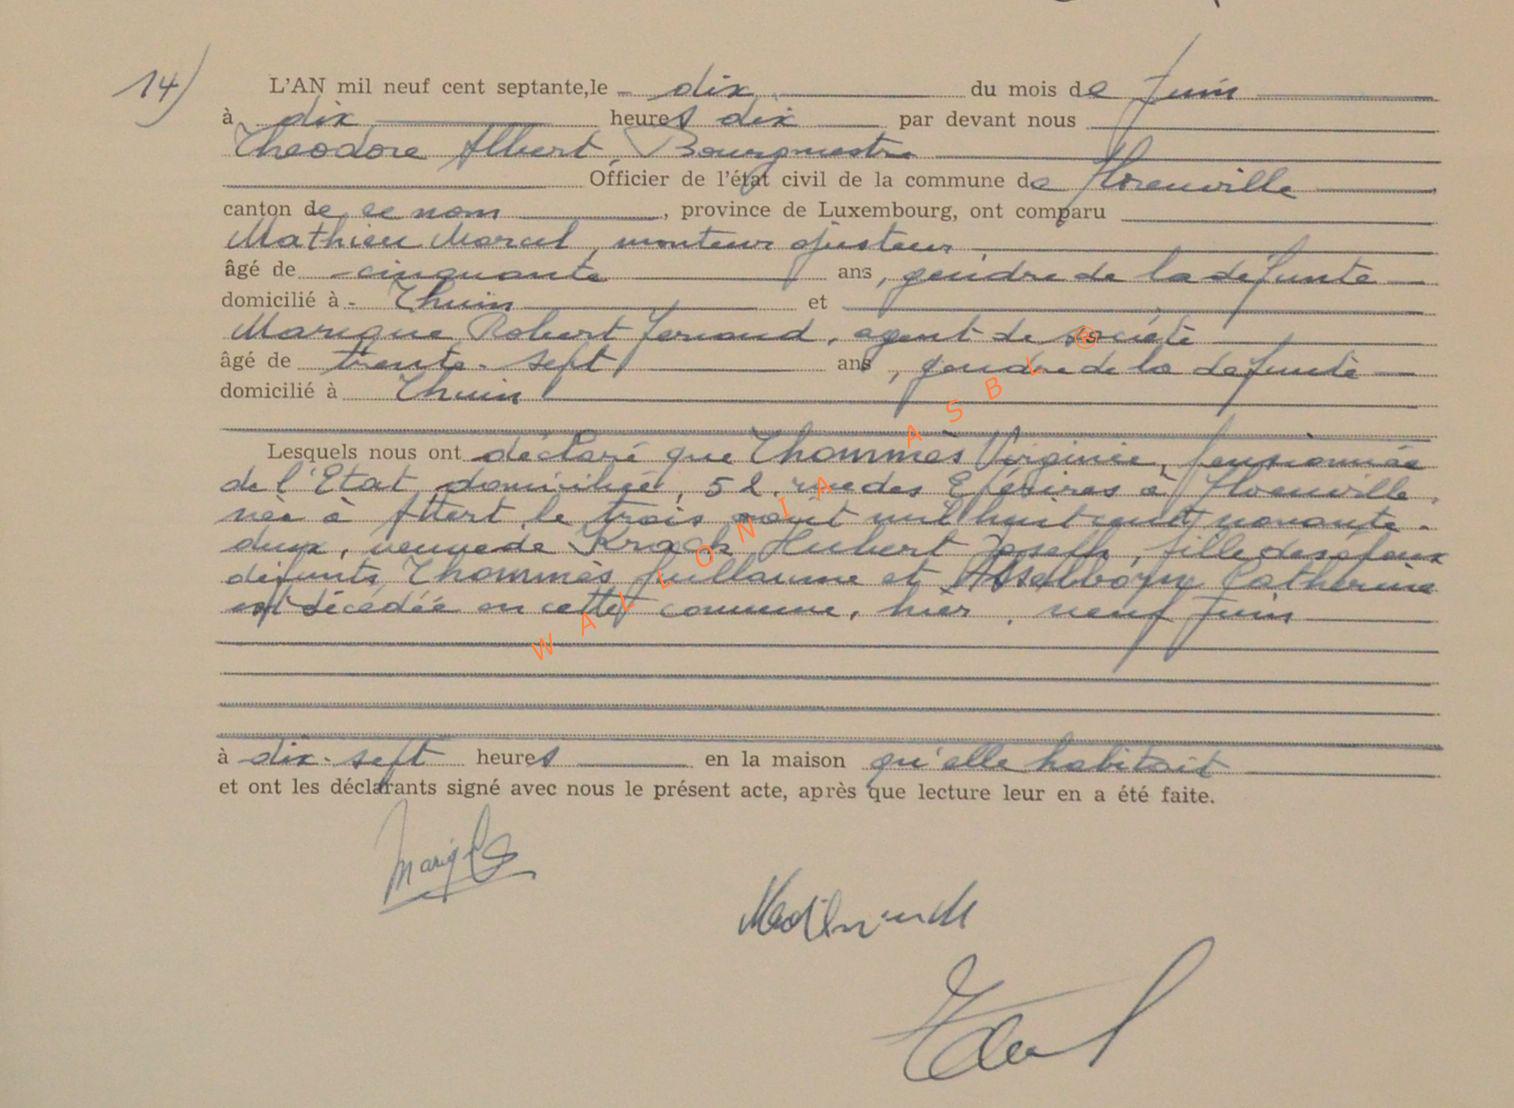 14)
L'AN mil neuf cent septante, le dix du mois de Juin
à dix heures dix par devant nous
Théodore Albert, Bourgmestre
Officier de l'état civil de la commune de Florenville
canton de ce nom, province de Luxembourg, ont comparu
Mathieu Marcel, monteur ajusteur
âgé de cinquante ans, gendre de la défunte
domicilié à Thuin et
Marique Robert Fernand, agent de société
âgé de trente-sept ans, gendre de la défunte
domicilié à Thuin
Lesquels nous ont déclaré que Thommès Virginie, pensionnée
de l'Etat domiciliée, 52, rue des Epésires à Florenville,
née à Attert, le trois août mil huit cent novante-
deux, veuve de Krack Hubert Joseph, fille des époux
défunts Thommès Guillaume et Asselborn Catherine
est décédée en cette commune, hier, neuf Juin
à dix-sept heures en la maison qu'elle habitait
et ont les déclarants signé avec nous le présent acte, après que lecture leur en a été faite.
WALLONIA ASBL